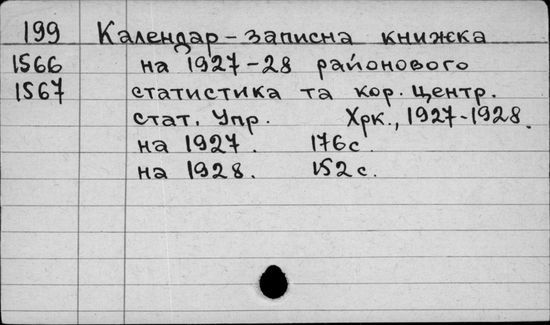 199 Календар-записна книжка
1566 на 1927-28 районового
1567 статистика та кор. Центр.
стат. Упр. Хрк., 1927-1928.
на 1927. 176 с.
на 1928. 152 с.